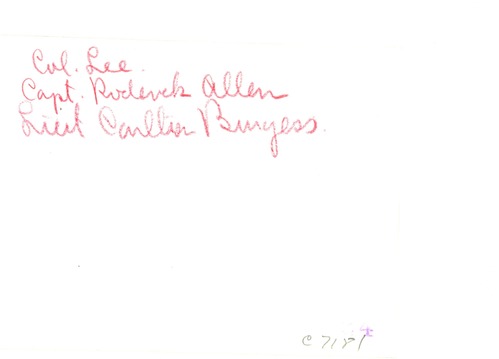 Col. Lee.
Capt. Roderick Allen
Lieut Carlton Burgess.
C 7181